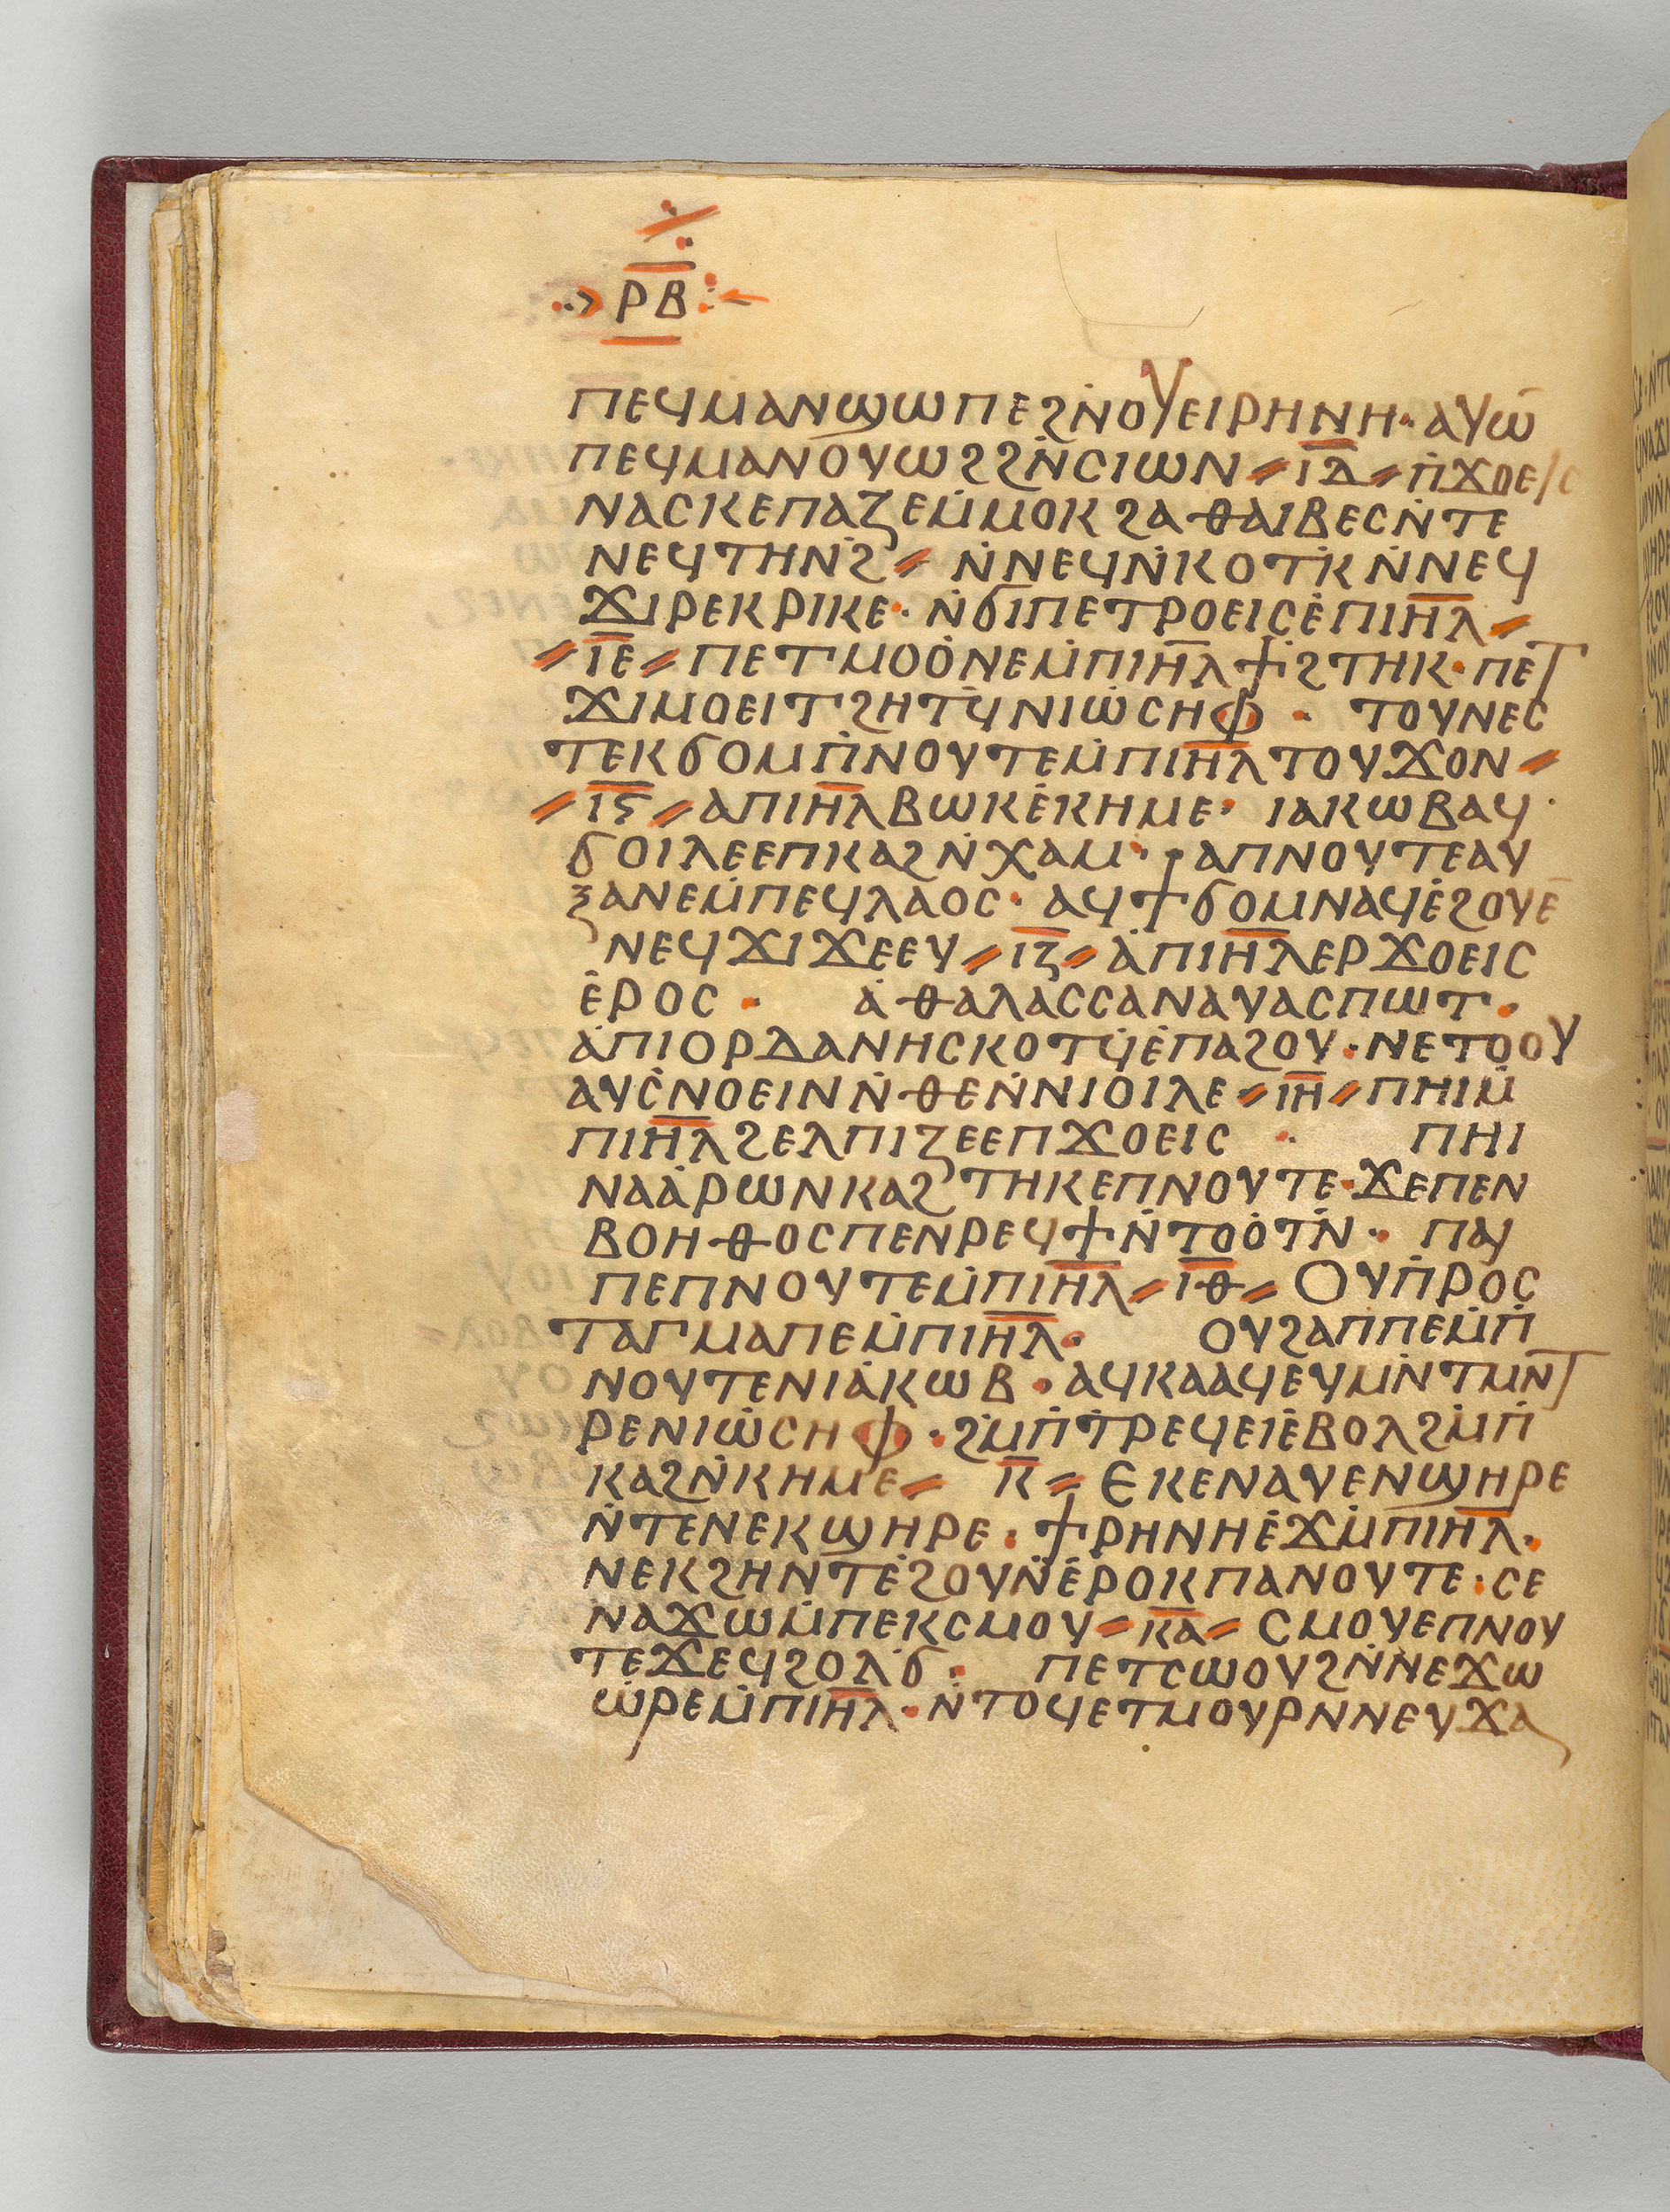 ⲢⲂ
ⲠⲈϤⲘⲀⲚϢⲰⲠⲈϨⲚ̇ⲞⲨⲈⲒⲢⲎⲚⲎ· ⲀⲨⲰ̅
ⲠⲈϤⲘⲀⲚⲞⲨⲰϨϨⲚ̇ⲤⲒⲰⲚ⸗ⲒⲆ̅⸗Ⲡ̇ϪⲞⲈⲒⲤ
ⲚⲀⲤⲔⲈⲠⲀⲌⲈⲘ̇ⲘⲞⲔϨⲀⲐⲀⲒⲂⲈⲤⲚ̇ⲦⲈ
ⲚⲈϤⲦⲎⲚϨ̇⸗ Ⲛ̇ⲚⲈϤⲚ̇ⲔⲞⲦⲔ̇Ⲛ̇ⲚⲈϤ
ϪⲒⲢⲈⲔⲢⲒⲔⲈ· Ⲛ̇ϬⲒⲠⲈⲦⲢⲞⲈⲒⲤⲈ̇ⲠⲒⲎ̅Ⲗ⸗
⸗ⲒⲈ̅⸗ⲠⲈⲦⲘⲞⲞ̇ⲚⲈⲘ̇ⲠⲒⲎ̅ⲖϮϨⲦⲎⲔ·ⲠⲈⲦ
ϪⲒⲘⲞⲈⲒⲦϨⲎⲦϤ̇ⲚⲒⲰ̇ⲤⲎⲪ · ⲦⲞⲨⲚⲈⲤ
ⲦⲈⲔϬⲞⲘⲠ̇ⲚⲞⲨⲦⲈⲘ̇ⲠⲒⲎ̅ⲖⲦⲞⲨϪⲞⲚ⸗
⸗ⲒⲊ̅⸗ⲀⲠⲒⲎ̅ⲖⲂⲰⲔⲈ̇ⲔⲎⲘⲈ· ⲒⲀⲔⲰⲂⲀϤ·
ϬⲞⲒⲖⲈⲈⲠⲔⲀϨⲚ̇ⲬⲀⲘ· ⲀⲠⲚⲞⲨⲦⲈⲀⲨ
ⲜⲀⲚⲈⲘ̇ⲠⲈϤⲖⲀⲞⲤ· ⲀϤϮϬⲞⲘⲚⲀϤⲈ̇ϨⲞⲨⲈ̅
ⲚⲈϤϪⲒϪⲈⲈⲨ⸗ⲒⲌ̅⸗Ⲁ̇ⲠⲒⲎ̅ⲖⲈⲢϪⲞⲈⲒⲤ
Ⲉ̇ⲢⲞⲤ· Ⲁ̇ⲐⲀⲖⲀⲤⲤⲀⲚⲀⲨⲀⲤⲠⲰⲦ·
Ⲁ̇ⲠⲒⲞⲢⲆⲀⲚⲎⲤⲔⲞⲦϤ̇Ⲉ̇ⲠⲀϨⲞⲨ·ⲚⲈⲦⲞⲞⲨ
ⲀⲨⲤ̇ⲚⲞⲈⲒⲚⲚ̇ⲐⲈⲚ̇ⲚⲒⲞⲒⲖⲈ⸗ⲒⲎ̅⸗ⲠⲎⲒⲘ̇
ⲠⲒⲎ̅ⲖϨⲈⲖⲠⲒⲌⲈⲈⲠϪⲞⲈⲒⲤ · ⲠⲎⲒ
ⲚⲀⲀ̇ⲢⲰⲚⲔⲀϨⲦⲎⲔⲈⲠⲚⲞⲨⲦⲈ·ϪⲈⲠⲈⲚ
ⲂⲞⲎⲐⲞⲤⲠⲈⲚⲢⲈϤϮⲚ̇ⲦⲞⲞ̇ⲦⲚ̇· ⲠⲀⲒ
ⲠⲈⲠⲚⲞⲨⲦⲈⲘ̇ⲠⲒⲎ̅Ⲗ⸗ⲒⲐ̅⸗ⲞⲨⲠ̇ⲢⲞⲤ
ⲦⲀⲄⲘⲀⲠⲈⲘ̇ⲠⲒⲎ̅Ⲗ· ⲞⲨϨⲀⲠⲠⲈⲘ̇Ⲡ̇
ⲚⲞⲨⲦⲈⲚⲒⲀ̇ⲔⲰⲂ·ⲀϤⲔⲀⲀϤⲈⲨⲘⲚ̇ⲦⲘⲚ̇Ⲧ
ⲢⲈⲚⲒⲰ̇ⲤⲎⲪ·ϨⲘ̇Ⲡ̇ⲦⲢⲈϤⲈⲒⲈ̇ⲂⲞⲖϨⲘ̇Ⲡ̇
ⲔⲀϨⲚ̇ⲔⲎⲘⲈ⸗ Ⲕ̅⸗ⲈⲔⲈⲚⲀⲨⲈⲚϢⲎⲢⲈ
Ⲛ̇ⲦⲈⲚⲈⲔϢⲎⲢⲈ·ϮⲢⲎⲚⲎⲈ̇ϪⲘ̇ⲠⲒⲎ̅Ⲗ·
ⲚⲈⲔϨⲎⲚⲦⲈ̇ϨⲞⲨⲚ̇Ⲉ̇ⲢⲞⲔⲠⲀⲚⲞⲨⲦⲈ·ⲤⲈ
ⲚⲀϪⲰⲘ̇ⲠⲈⲔⲤⲘⲞⲨ⸗ⲔⲀ̅⸗ⲤⲘⲞⲨⲈⲠⲚⲞⲨ
ⲦⲈϪⲈϤϨⲞⲖ̇Ϭ· ⲠⲈⲦⲤⲰⲞⲨϨⲚ̇ⲚⲈϪⲰ
Ⲱ̇ⲢⲈⲘ̇ⲠⲒⲎ̅Ⲗ·Ⲛ̇ⲦⲞϤⲈⲦⲘⲞⲨⲢⲚⲚⲈⲨⲬⲀ